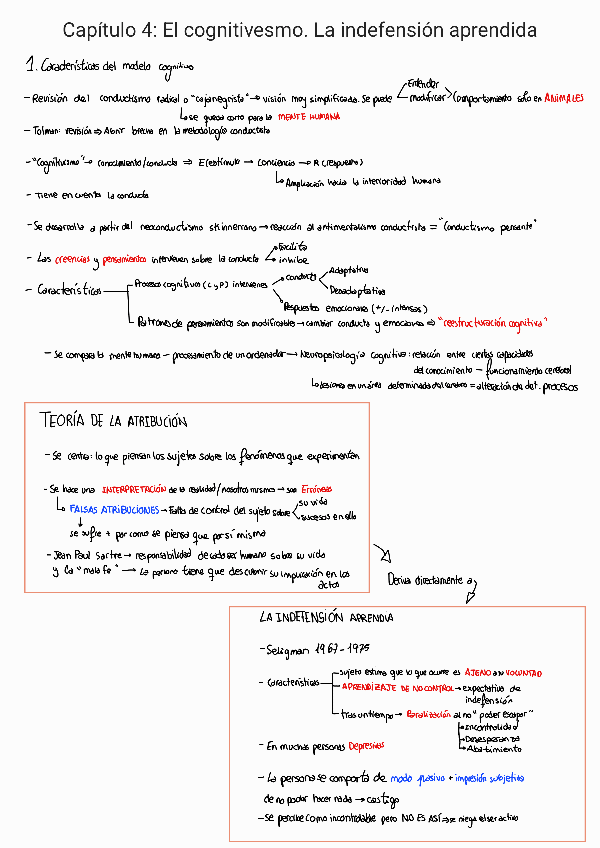 Capítulo 4: El cognitivesmo. La indefensión aprendida
1. Características del modelo cognitivo
- Revisión del conductismo radical o "cajanegrista" → visión muy simplificada. Se puede
Entender
modificar
comportamiento sólo en ANIMALES
↳ se queda corto para la MENTE HUMANA
- Tolman: revisión ⇒ Abrir brecha en la metodología conductista
- "Cognitivismo" → conocimiento/conducta ⇒ E(estímulo → Conciencia → R (respuesta)
↳ Ampliación hacia la interioridad humana
- Tiene en cuenta la conducta
- Se desarrolla a partir del neoconductismo skinneriano → reacción al antimentalismo conductista = "Conductismo pensante"
- Las creencias y pensamientos intervienen sobre la conducta
Facilita
inhibe
- Características
Procesos cognitivos (C y P) intervienen
conducta
Adaptativa
Desadaptativa
Respuestas emocionales (+/- intensas)
Patrones de pensamientos son modificables → cambiar conducta y emociones ⇒ "reestructuración cognitiva"
- Se compara la mente humana - procesamiento de un ordenador → Neuropsicología Cognitiva: relación entre ciertas capacidades
del conocimiento - funcionamiento cerebral
↳ lesiones en un área determinada del cerebro = alteración de det. procesos
TEORÍA DE LA ATRIBUCIÓN
- Se centra: lo que piensan los sujetos sobre los fenómenos que experimentan
- Se hace una INTERPRETACIÓN de la realidad/nosotros mismos → son Erróneas
↳ FALSAS ATRIBUCIONES → Falta de control del sujeto sobre
su vida
sucesos en ella
se sufre + por como se piensa que por sí misma
- Jean Paul Sartre → responsabilidad de cada ser humano sobre su vida
y la "mala fe" → La persona tiene que descubrir su implicación en los
actos
Deriva directamente a
LA INDEFENSIÓN APRENDIA
- Seligman 1967 - 1975
- Características
sujeto estima que lo que ocurre es AJENO a su VOLUNTAD
APRENDIZAJE DE NO CONTROL → expectativa de
indefensión
tras un tiempo → Paralización al no "poder escapar"
Incontrolidad
Desesperanza
Abatimiento
- En muchas personas Depresivas
- La persona se comporta de modo pasivo + impresión subjetiva
de no poder hacer nada → castigo
- Se percibe como incontrolable pero NO ES ASÍ → se niega el ser activo